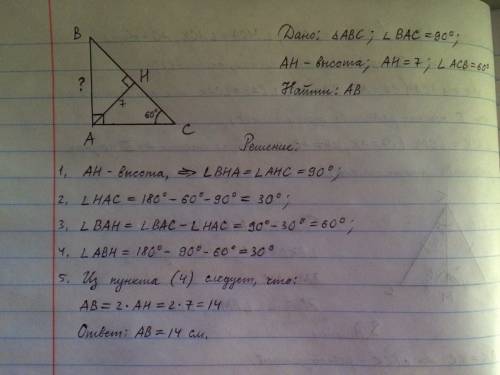 B
Дано: △ABC; ∠BAC = 90°;
AH - высота; AH = 7; ∠ACB = 60°
Найти: AB
H
?
7
60°
A
C
Решение:
1. AH - высота, ⇒ ∠BHA = ∠AHC = 90°;
2. ∠HAC = 180° - 60° - 90° = 30°;
3. ∠BAH = ∠BAC - ∠HAC = 90° - 30° = 60°;
4. ∠ABH = 180° - 90° - 60° = 30°
5. Из пункта (4) следует, что:
AB = 2 · AH = 2 · 7 = 14
Ответ: AB = 14 см.